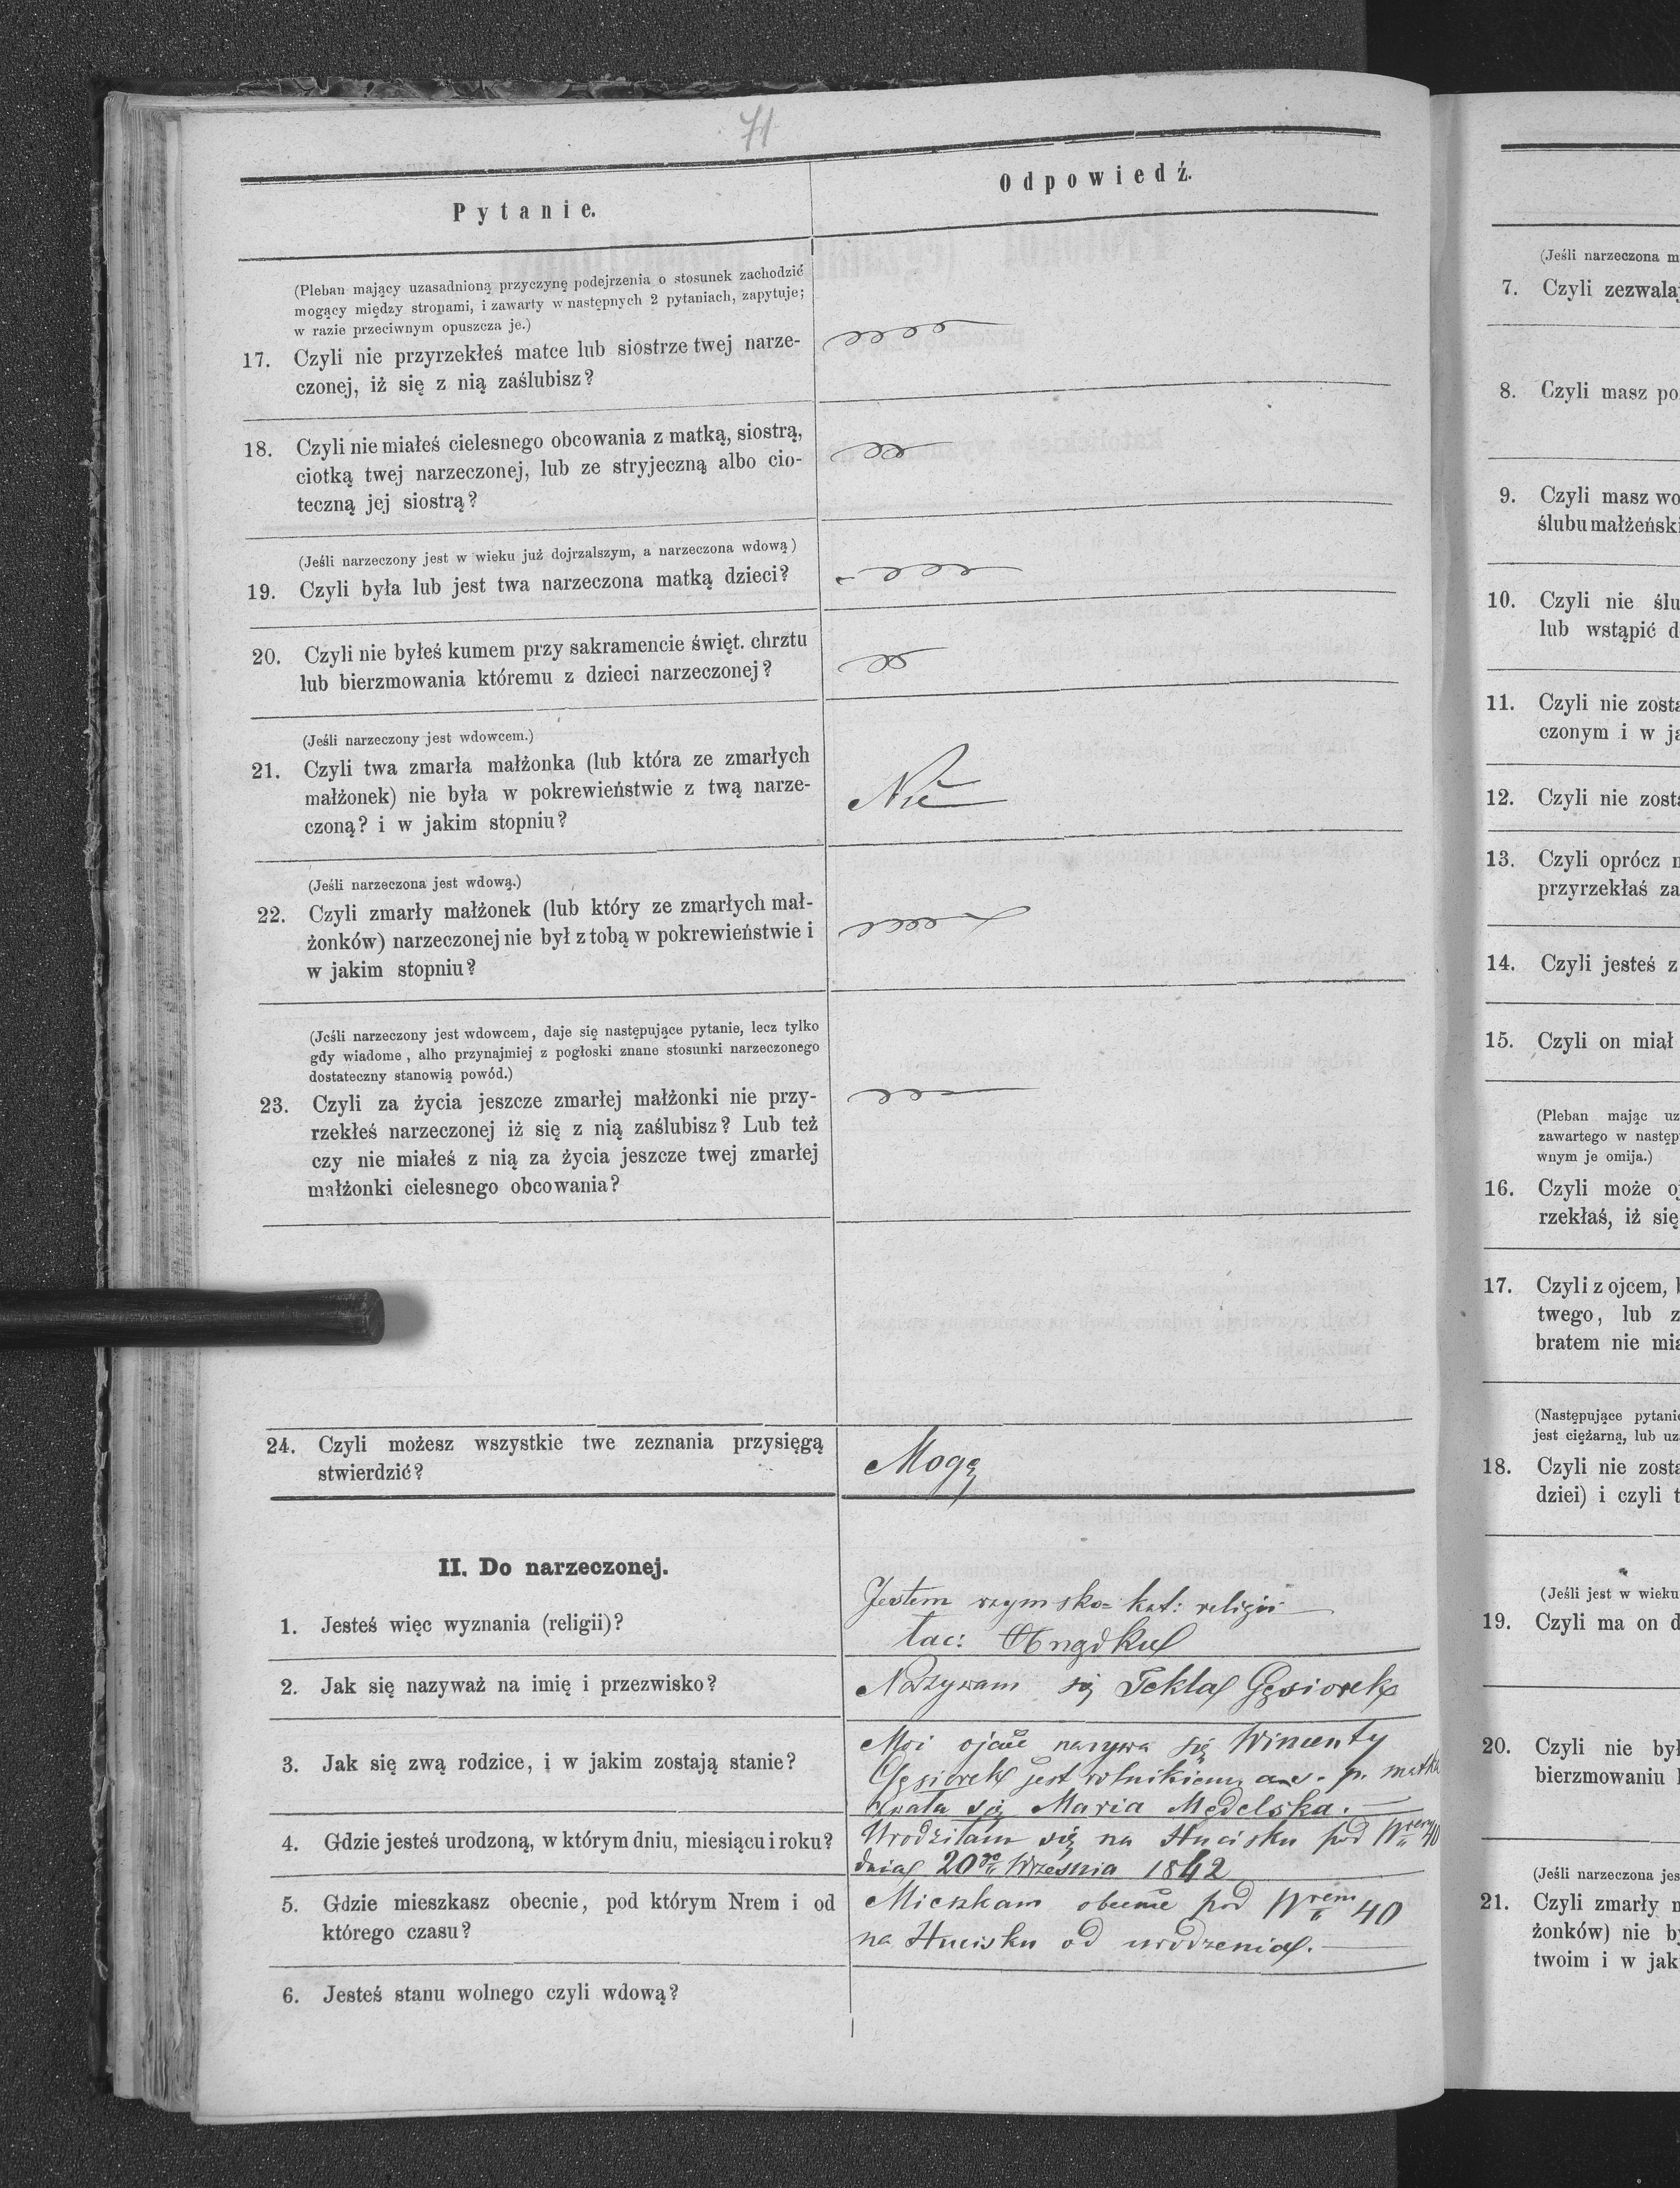 71
Pytanie.
Odpowiedź.
(Pleban mający uzasadnioną przyczynę podejrzenia o stosunek zachodzić
mogący między stronami, i zawarty w następnych 2 pytaniach, zapytuje;
w razie przeciwnym opuszcza je.)
17. Czyli nie przyrzekłeś matce lub siostrze twej narze-
czonej, iż się z nią zaślubisz?
18. Czyli nie miałeś cielesnego obcowania z matką, siostrą,
ciotką twej narzeczonej, lub ze stryjeczną albo cio-
teczną jej siostrą?
(Jeśli narzeczony jest w wieku już dojrzalszym, a narzeczona wdową)
19. Czyli była lub jest twa narzeczona matką dzieci?
20. Czyli nie byłeś kumem przy sakramencie święt. chrztu
lub bierzmowania któremu z dzieci narzeczonej?
(Jeśli narzeczony jest wdowcem.)
21. Czyli twa zmarła małżonka (lub która ze zmarłych
małżonek) nie była w pokrewieństwie z twą narze-
czoną? i w jakim stopniu?
Nie
(Jeśli narzeczona jest wdową.)
22. Czyli zmarły małżonek (lub który ze zmarłych mał-
żonków) narzeczonej nie był z tobą w pokrewieństwie i
w jakim stopniu?
(Jeśli narzeczony jest wdowcem, daje się następujące pytanie, lecz tylko
gdy wiadome, alho przynajmiej z pogłoski znane stosunki narzeczonego
dostateczny stanowią powód.)
23. Czyli za życia jeszcze zmarłej małżonki nie przy-
rzekłeś narzeczonej iż się z nią zaślubisz? Lub też
czy nie miałeś z nią za życia jeszcze twej zmarłej
małżonki cielesnego obcowania?
24. Czyli możesz wszystkie twe zeznania przysięgą
stwierdzić?
Mogę
II. Do narzeczonej.
1. Jesteś więc wyznania (religii)?
Jestem rzymsko= kat: religii
łac:
2. Jak się nazyważ na imię i przezwisko?
Nazywam się Tekla Gąsiorek
3. Jak się zwą rodzice, i w jakim zostają stanie?
Mój ojciec nazywa się Wincenty
Gąsiorek jest rolnikiem, a ś. p. matka
zwała się Maria Mędelska.
4. Gdzie jesteś urodzoną, w którym dniu, miesiącu i roku?
Urodziłam się na Hucisku pod Nrem 40
dnia 20go Września 1842
5. Gdzie mieszkasz obecnie, pod którym Nrem i od
którego czasu?
Mieszkam obecnie pod Nrem 40
na Hucisku od urodzenia.
6. Jesteś stanu wolnego czyli wdową?
(Jeśli narzeczona m
7. Czyli zezwala
8. Czyli masz po
9. Czyli masz wo
ślubu małżeńsk
10. Czyli nie ślu
lub wstąpić d
11. Czyli nie zosta
czonym i w ja
12. Czyli nie zosta
13. Czyli oprócz n
przyrzekłaś za
14. Czyli jesteś z
15. Czyli on miał
(Pleban mając uz
zawartego w następ
wnym je omija.)
16. Czyli może oj
rzekłaś, iż się
17. Czyli z ojcem, b
twego, lub z
bratem nie mia
(Następujące pytanie
jest ciężarną, lub uz
18. Czyli nie zosta
dziei) i czyli t
(Jeśli jest w wieku
19. Czyli ma on d
20. Czyli nie był
bierzmowaniu
(Jeśli narzeczona jes
21. Czyli zmarły m
żonków) nie by
twoim i w jak